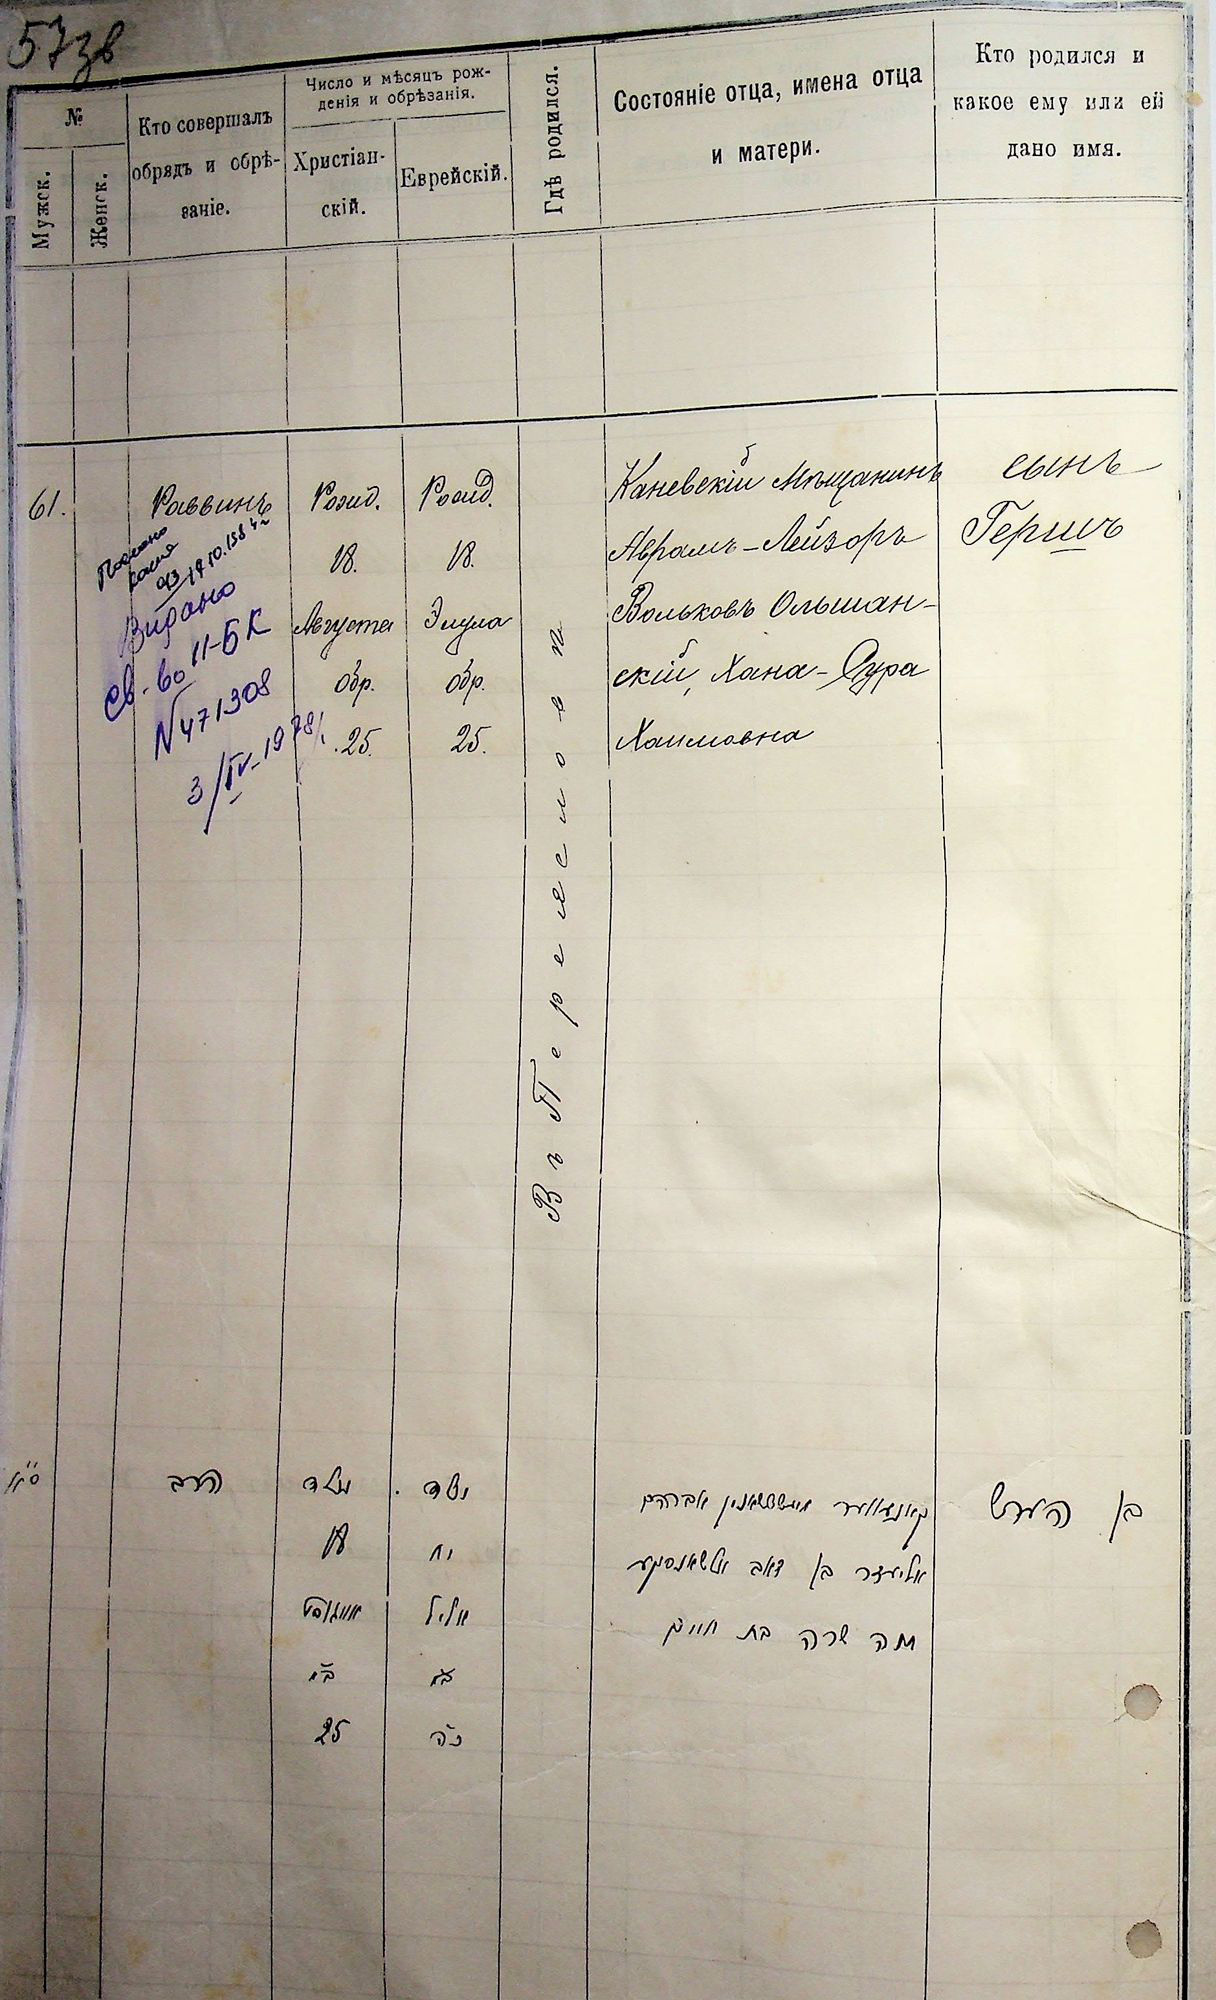 57зв
№
Мужск.
Женск.
Кто совершалъ
обрядъ и обрѣ-
заніе.
Число и мѣсяцъ рож-
денія и обрѣзанія.
Христіан-
скій.
Еврейскій.
Гдѣ родился.
Состояніе отца, имена отца
и матери.
Кто родился и
какое ему или ей
дано имя.
61.
Раввинъ
Послано
копия
17.10.1984
Видано
св-во II-БК
N 471308
3/IV-1978
Рожд.
18.
Августа
обр.
25.
Рожд.
18.
Элула
обр.
25.
Въ Переяслов
Каневскій Мѣщанинъ
Аврамъ-Лейзоръ
Вольковъ Ольшан-
скій, Хана-Сура
Хаимовна
сынъ
Гершъ
ס״א
הרב
נולד
18
אויגוסט
25
נולד
יח
אלול
כ״ה
קאנעווער מעשטשאנין אברהם
אליעזר בן זאב אלשאנסקי
חנה שרה בת חיים
בן הערש